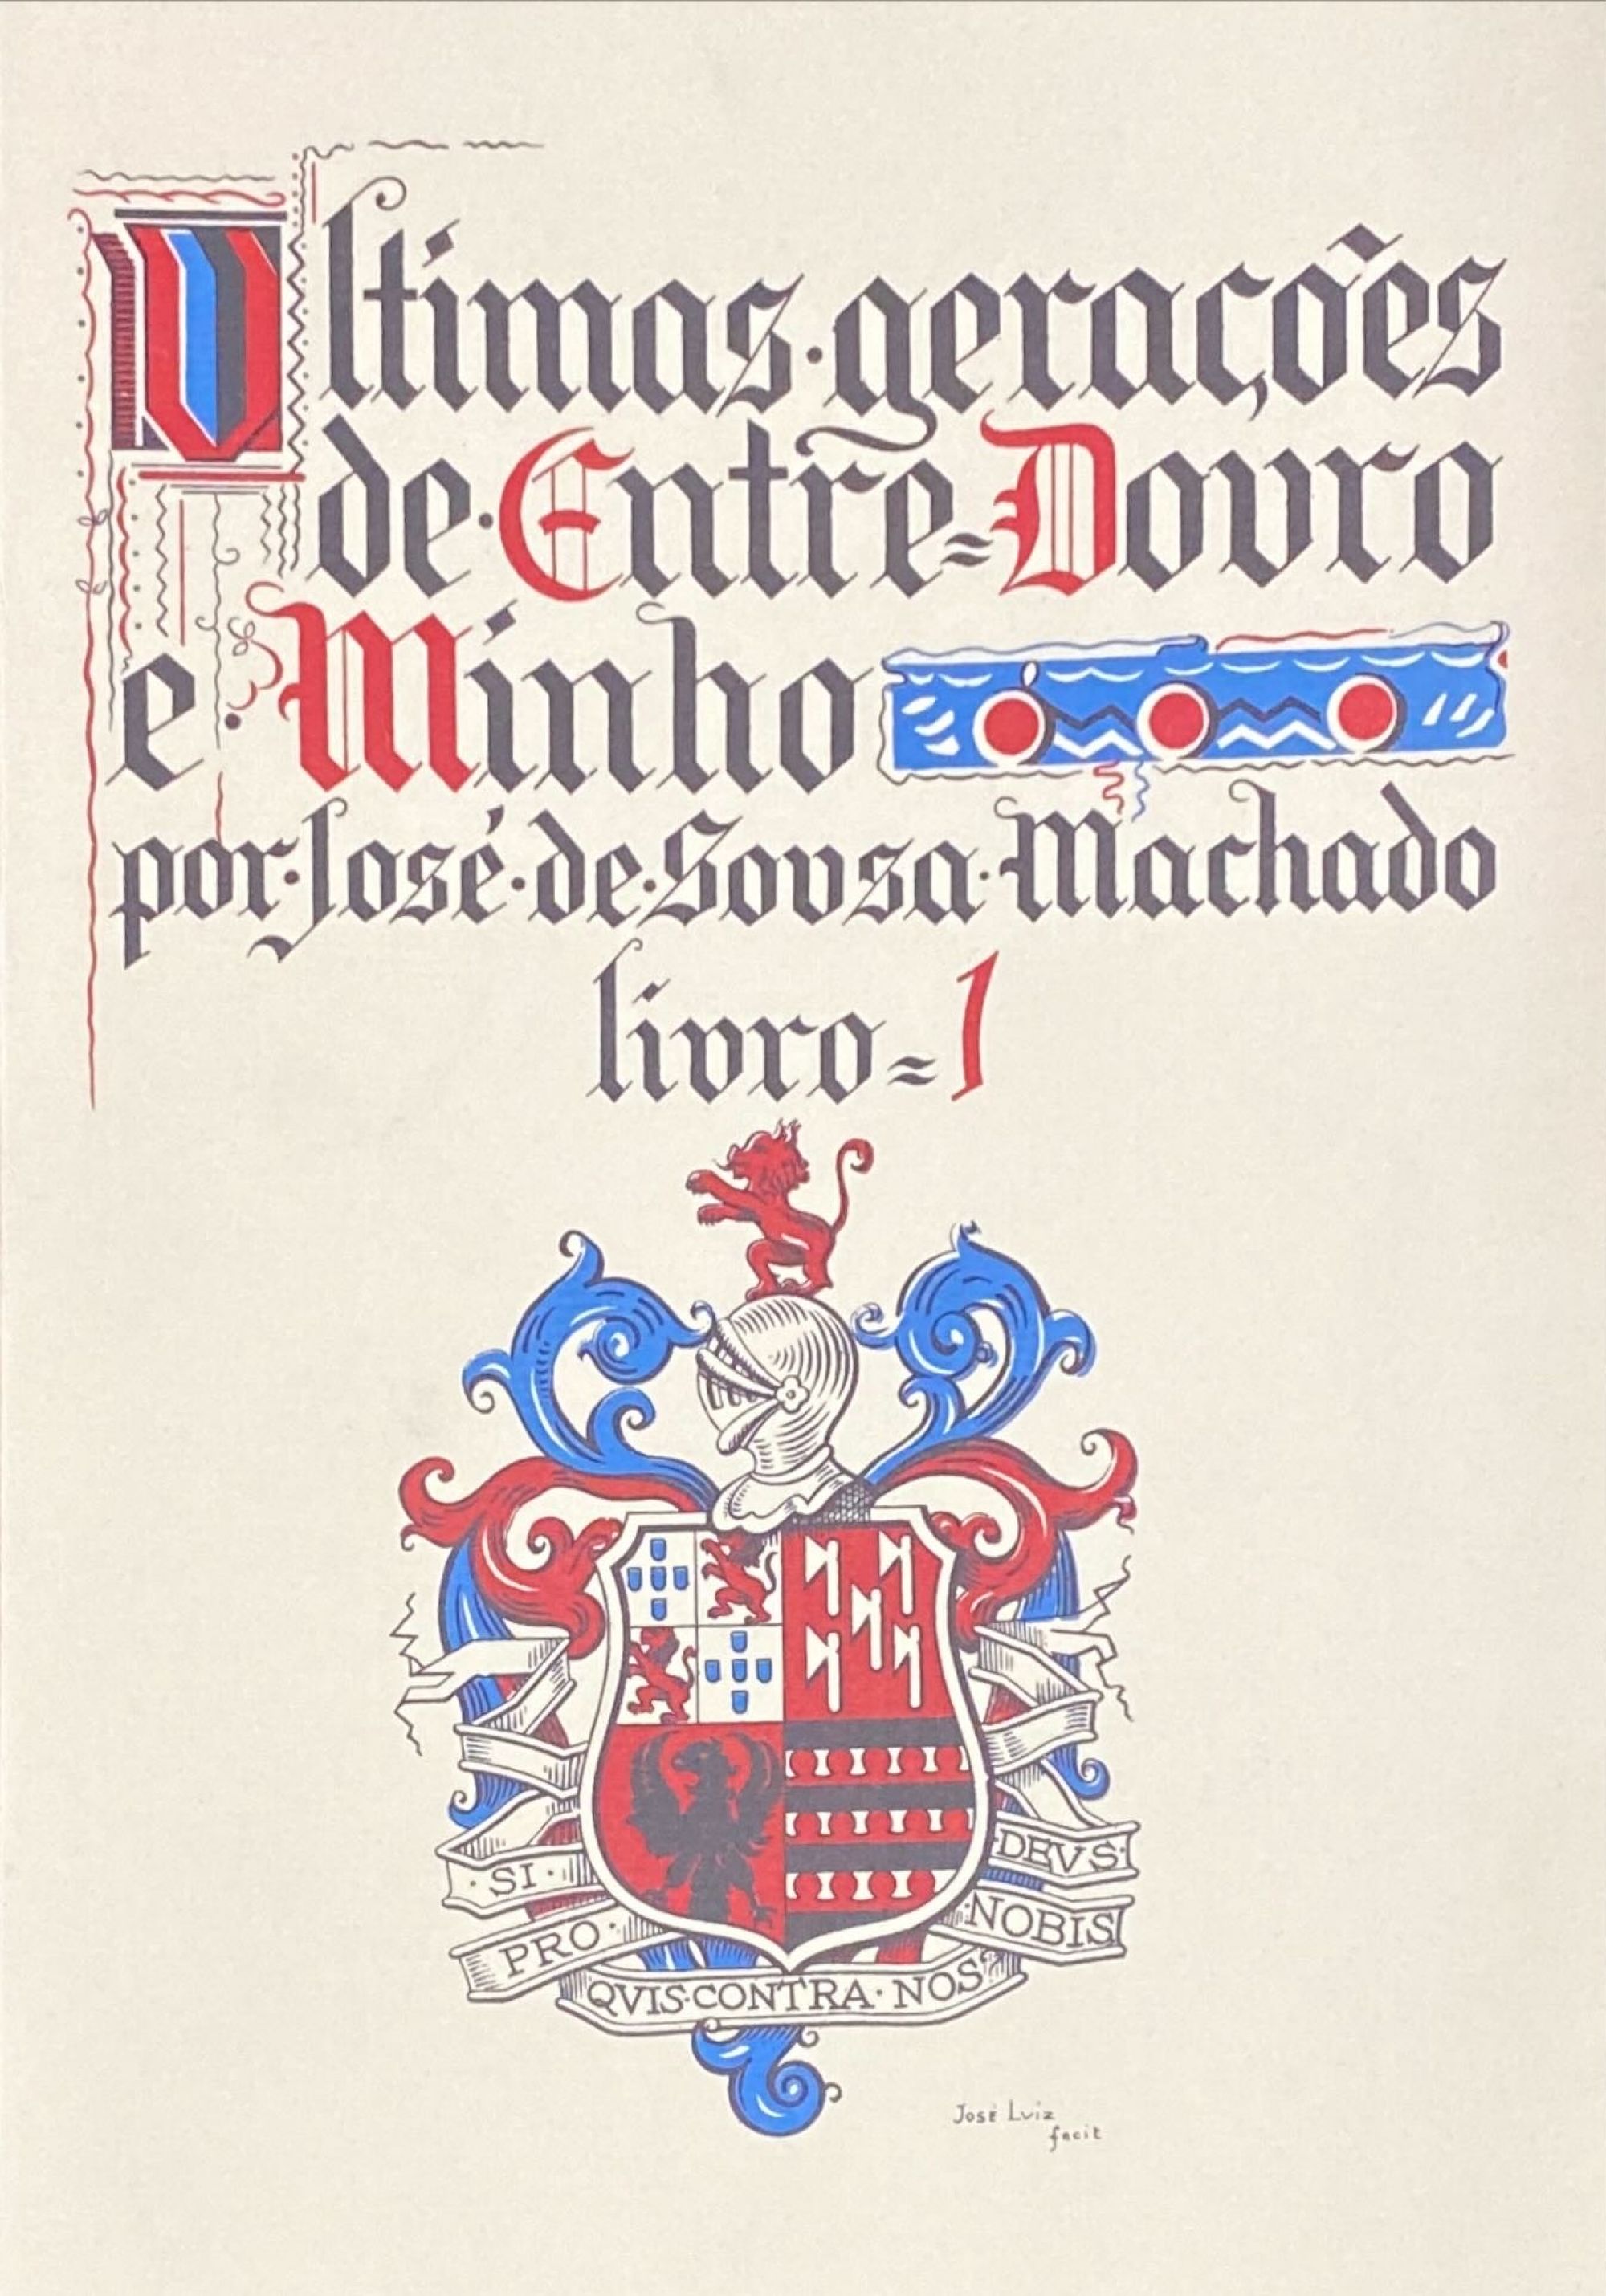 Vltimas · gerações
de · Entre = Dovro
e · Minho
por · José · de · Sovsa · Machado
livro = 1
· SI ·
PRO ·
DEVS ·
NOBIS
QVIS · CONTRA · NOS ?
José Lviz
facit